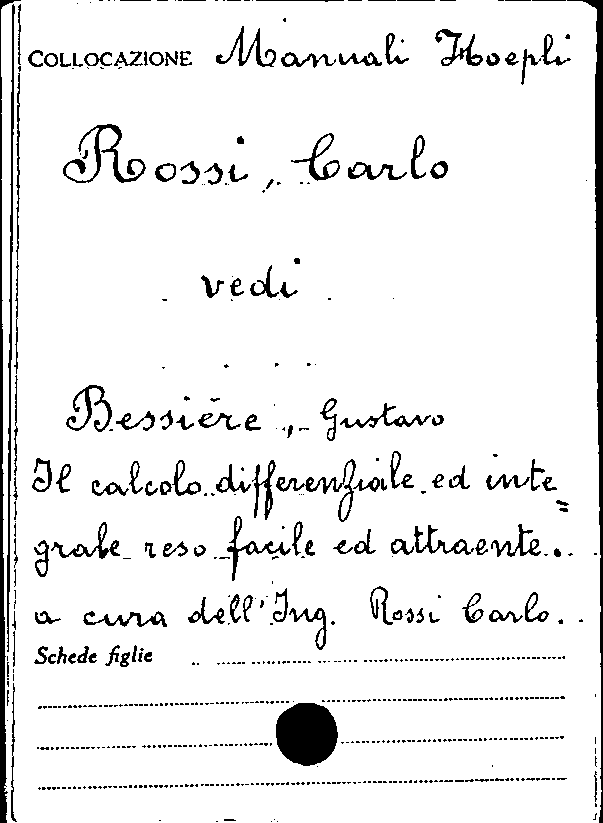 COLLOCAZIONE Manuali Hoepli
Rossi, Carlo
vedi
Bessière, Gustavo
Il calcolo differenziale ed inte=
grale reso facile ed attraente..
a cura dell'Ing. Rossi Carlo.
Schede figlie